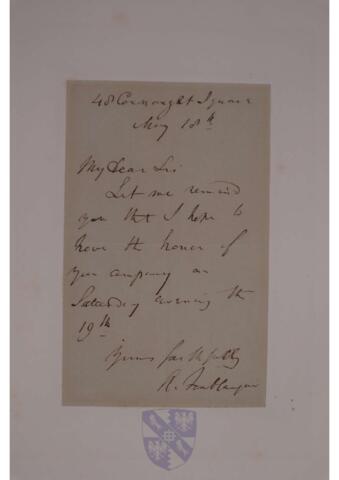 48 Connaught Square
May 18th
My Dear Sir
Let me remind
you that I hope to
have the honor of
your company on
Saturday evening the
19th
Yours faithfully
A.